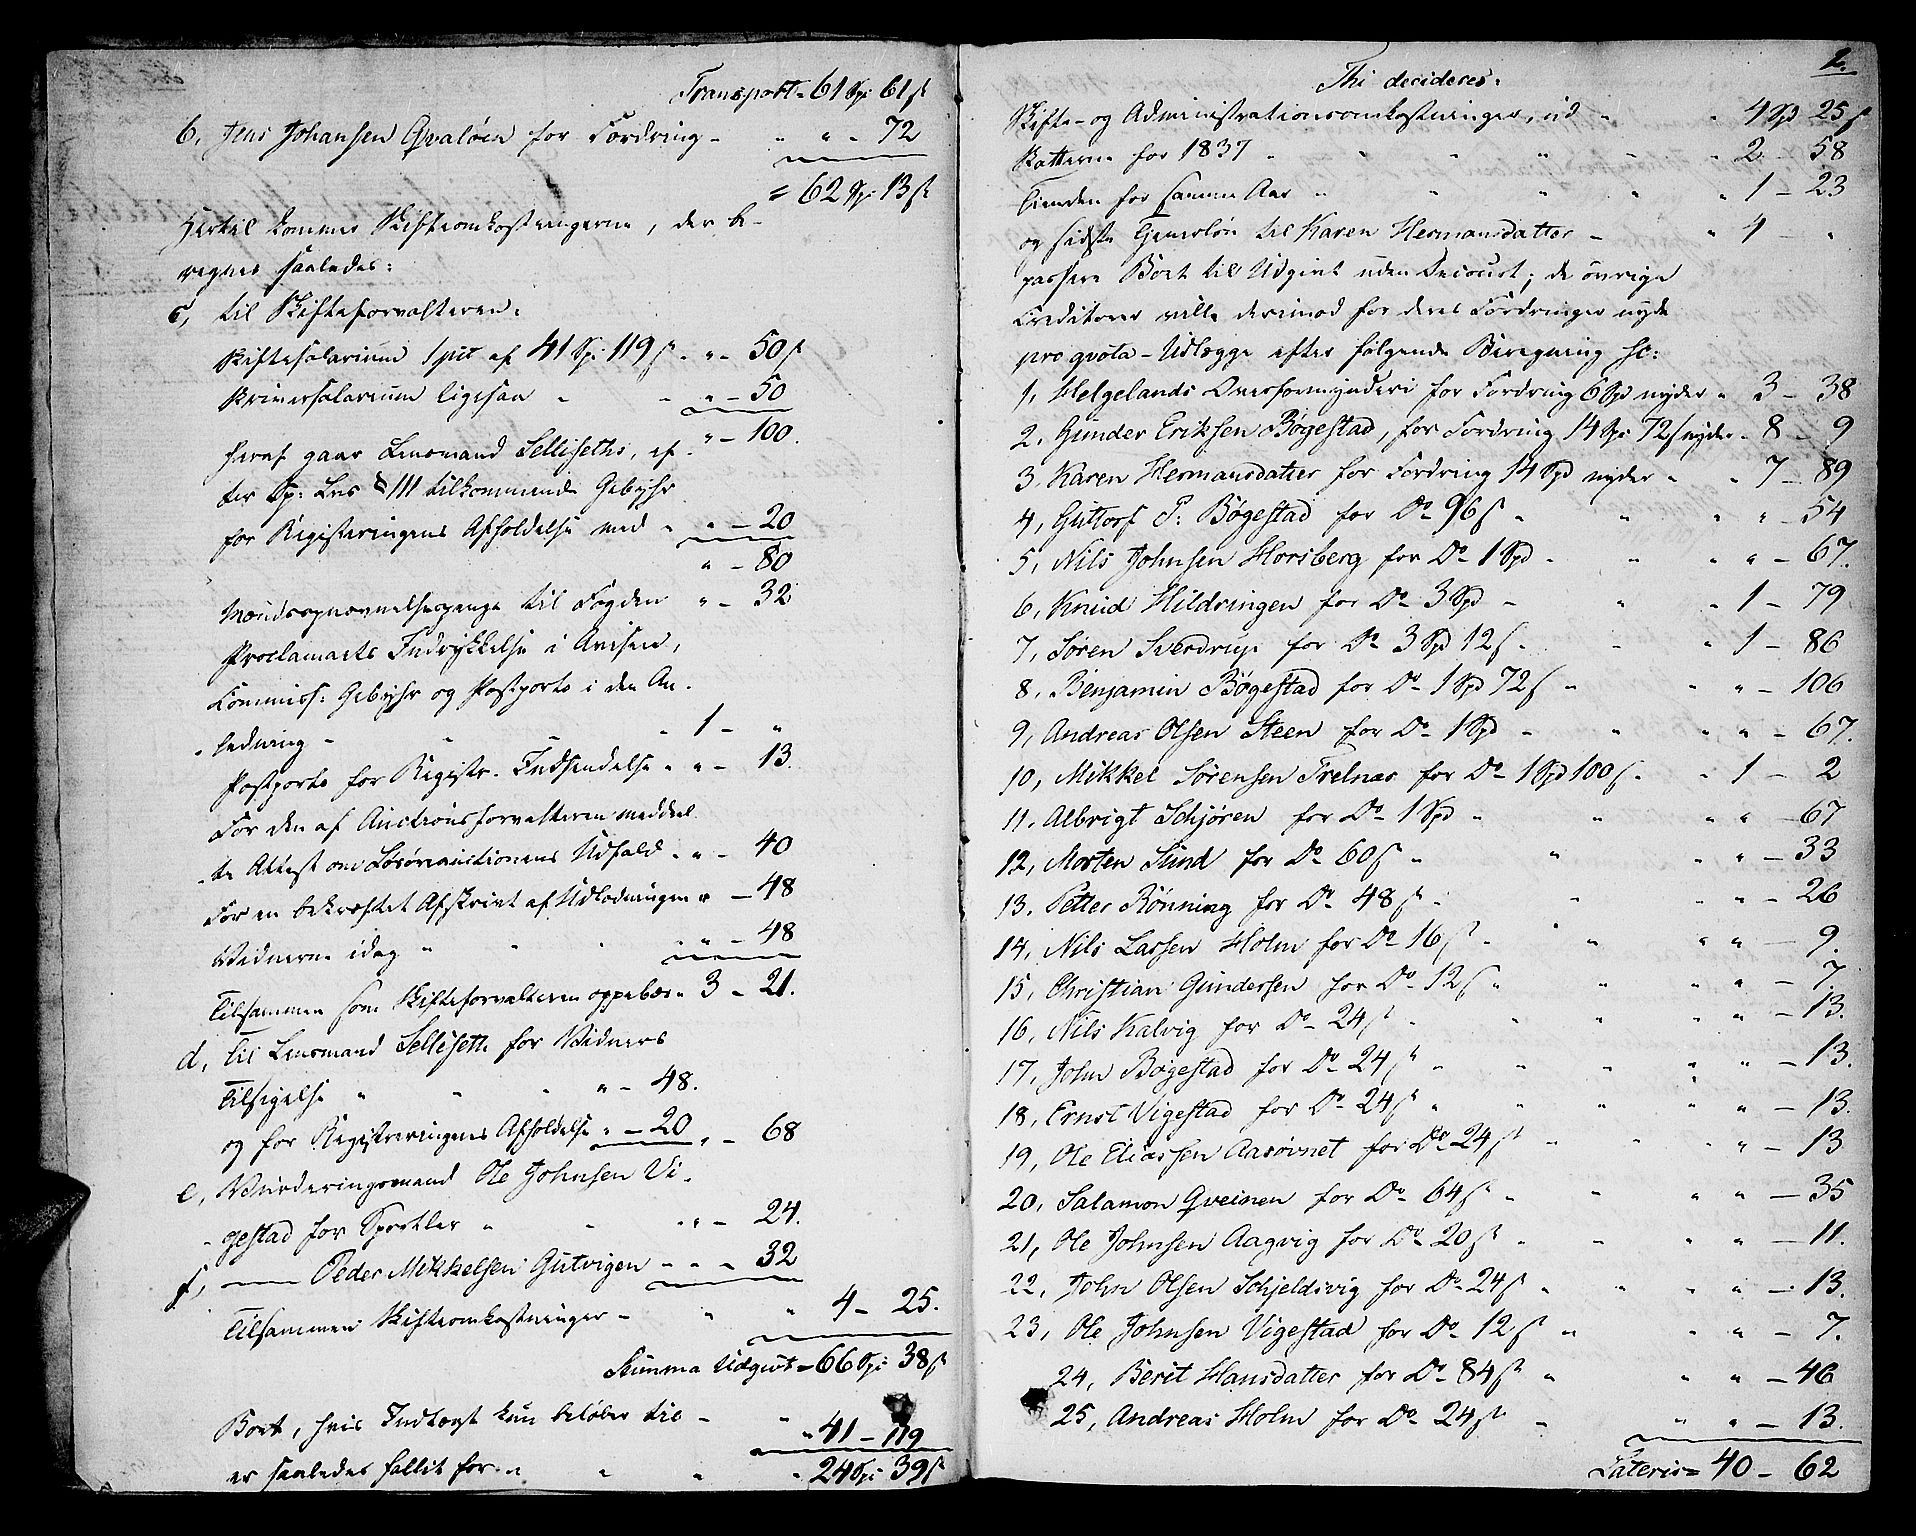 Transport = 61 Spd 61 ß
6, Jens Johansen Qvaløen for Fordring - " " - 72
= 62 Spd 13 ß
Hertil kommer Skifteomkostningerne, der be-
regnes saaledes:
c, til Skifteforvalteren:
Skiftesalarium 1 pCt af 41 Spd 119 ß " " - 50 ß
Skriversalarium ligesaa " " " - 50
" - 100.
heraf gaar Lensmand Selliseths, ef-
ter Sp: Lns § 111 tilkommende Gebyhr
for Registeringens Afholdelse med " " - 20
" - 80
Mændsopnævnelsespenge til Fogden " - 32
Proclamaets Indrykkelse i Avisen,
Commiss: Gebyhr og Postporto i den An-
-ledning " " " 1 - "
Postporto for Registr. Indsendelse " " - 13.
For den af Auctionsforvalteren meddeel-
-te Attest om Løsøreauctionens Udfald " " - 40
For en bekræftet Afskrivt af Udlodningen " - 48
Vidnerne idag " " " " - 48
Tilsammen som Skifteforvalteren oppebær " 3 - 21.
d, til Lensmand Selliseth for Vidners
Tilsigelse " " " " - 48.
og for Registreringens Afholdelse " - 20 " - 68
e, Vurderingsmand Ole Johnsen Vi-
-gestad for Sportler " " " " - 24.
f, —— Peder Mikkelsen Gutvigen " " - 32
Tilsammen Skifteomkostninger - " " 4 - 25.
Summa Udgivt = 66 Spd 38 ß
Boet, hvis Indtægt kun beløber til - " " 41 - 119
er saaledes fallit for " " " " 24 Spd 39 ß
2.
Thi decideres:
Skifte- og Administrationsomkostninger, ud " " 4 Spd 25 ß
Skatterne for 1837 " " " " " " 2 - 58
Tienden for samme Aar " " " " " 1 - 23
og sidste Tjenerløn til Karen Hermansdatter - " 4 - "
passere Boet til Udgivt uden Decourt; de øvrige
Creditorer ville derimod for deres Fordringer nyde
pro qvota - Udlægge efter følgende Beregning sc:
1, Helgelands Overformynderi for Fordring 6 Spd nyder " 3 - 38
2, Gunder Eriksen Bøgestad, for Fordring 14 Spd 72 ß nyder " 8 - 9
3, Karen Hermansdatter for Fordring 14 Spd nyder " " 7 - 89
4, Guttorf P: Bøgestad for Do 96 ß " " " " - 54
5, Nils Johnsen Horsberg for Do 1 Spd " " " " - 67.
6, Knud Hildringen for Do 3 Spd " " " 1 - 79
7, Søren Sverdrup for Do 3 Spd 12 ß " " " 1 - 86
8, Benjamin Bøgestad for Do 1 Spd 72 ß " " " - 106
9, Andreas Olsen Steen for Do 1 Spd " " " " - 67.
10, Mikkel Sørensen Trelnæs for Do 1 Spd 100 ß " " 1 - 2
11, Albrigt Schjøren for Do 1 Spd " " " " - 67
12, Morten Sund for Do 60 ß " " " " - 33
13, Petter Rønning for Do 48 ß " " " " - 26
14, Nils Lassen Holm for Do 16 ß " " " " - 9.
15, Christian Gundersen for Do 12 ß " " " " - 7.
16, Nils Kalvig for Do 24 ß " " " " " - 13.
17, John Bøgestad for Do 24 ß " " " " " - 13.
18, Ernst Vigestad for Do 24 ß " " " " " - 13.
19, Ole Eliassen Aasøvnet for Do 24 ß " " " " - 13
20, Salamon Qveinen for Do 64 ß " " " " - 35
21, Ole Johnsen Aagvig for Do 20 ß " " " " - 11.
22, John Olsen Schjeldsvig for Do 24 ß " " " " - 13.
23, Ole Johnsen Vigestad for Do 12 ß " " " - 7.
24, Berit Hansdatter for Do 84 ß " " " - 46
25, Andreas Holm for Do 24 ß " " " - 13.
Lateris = 40 - 62